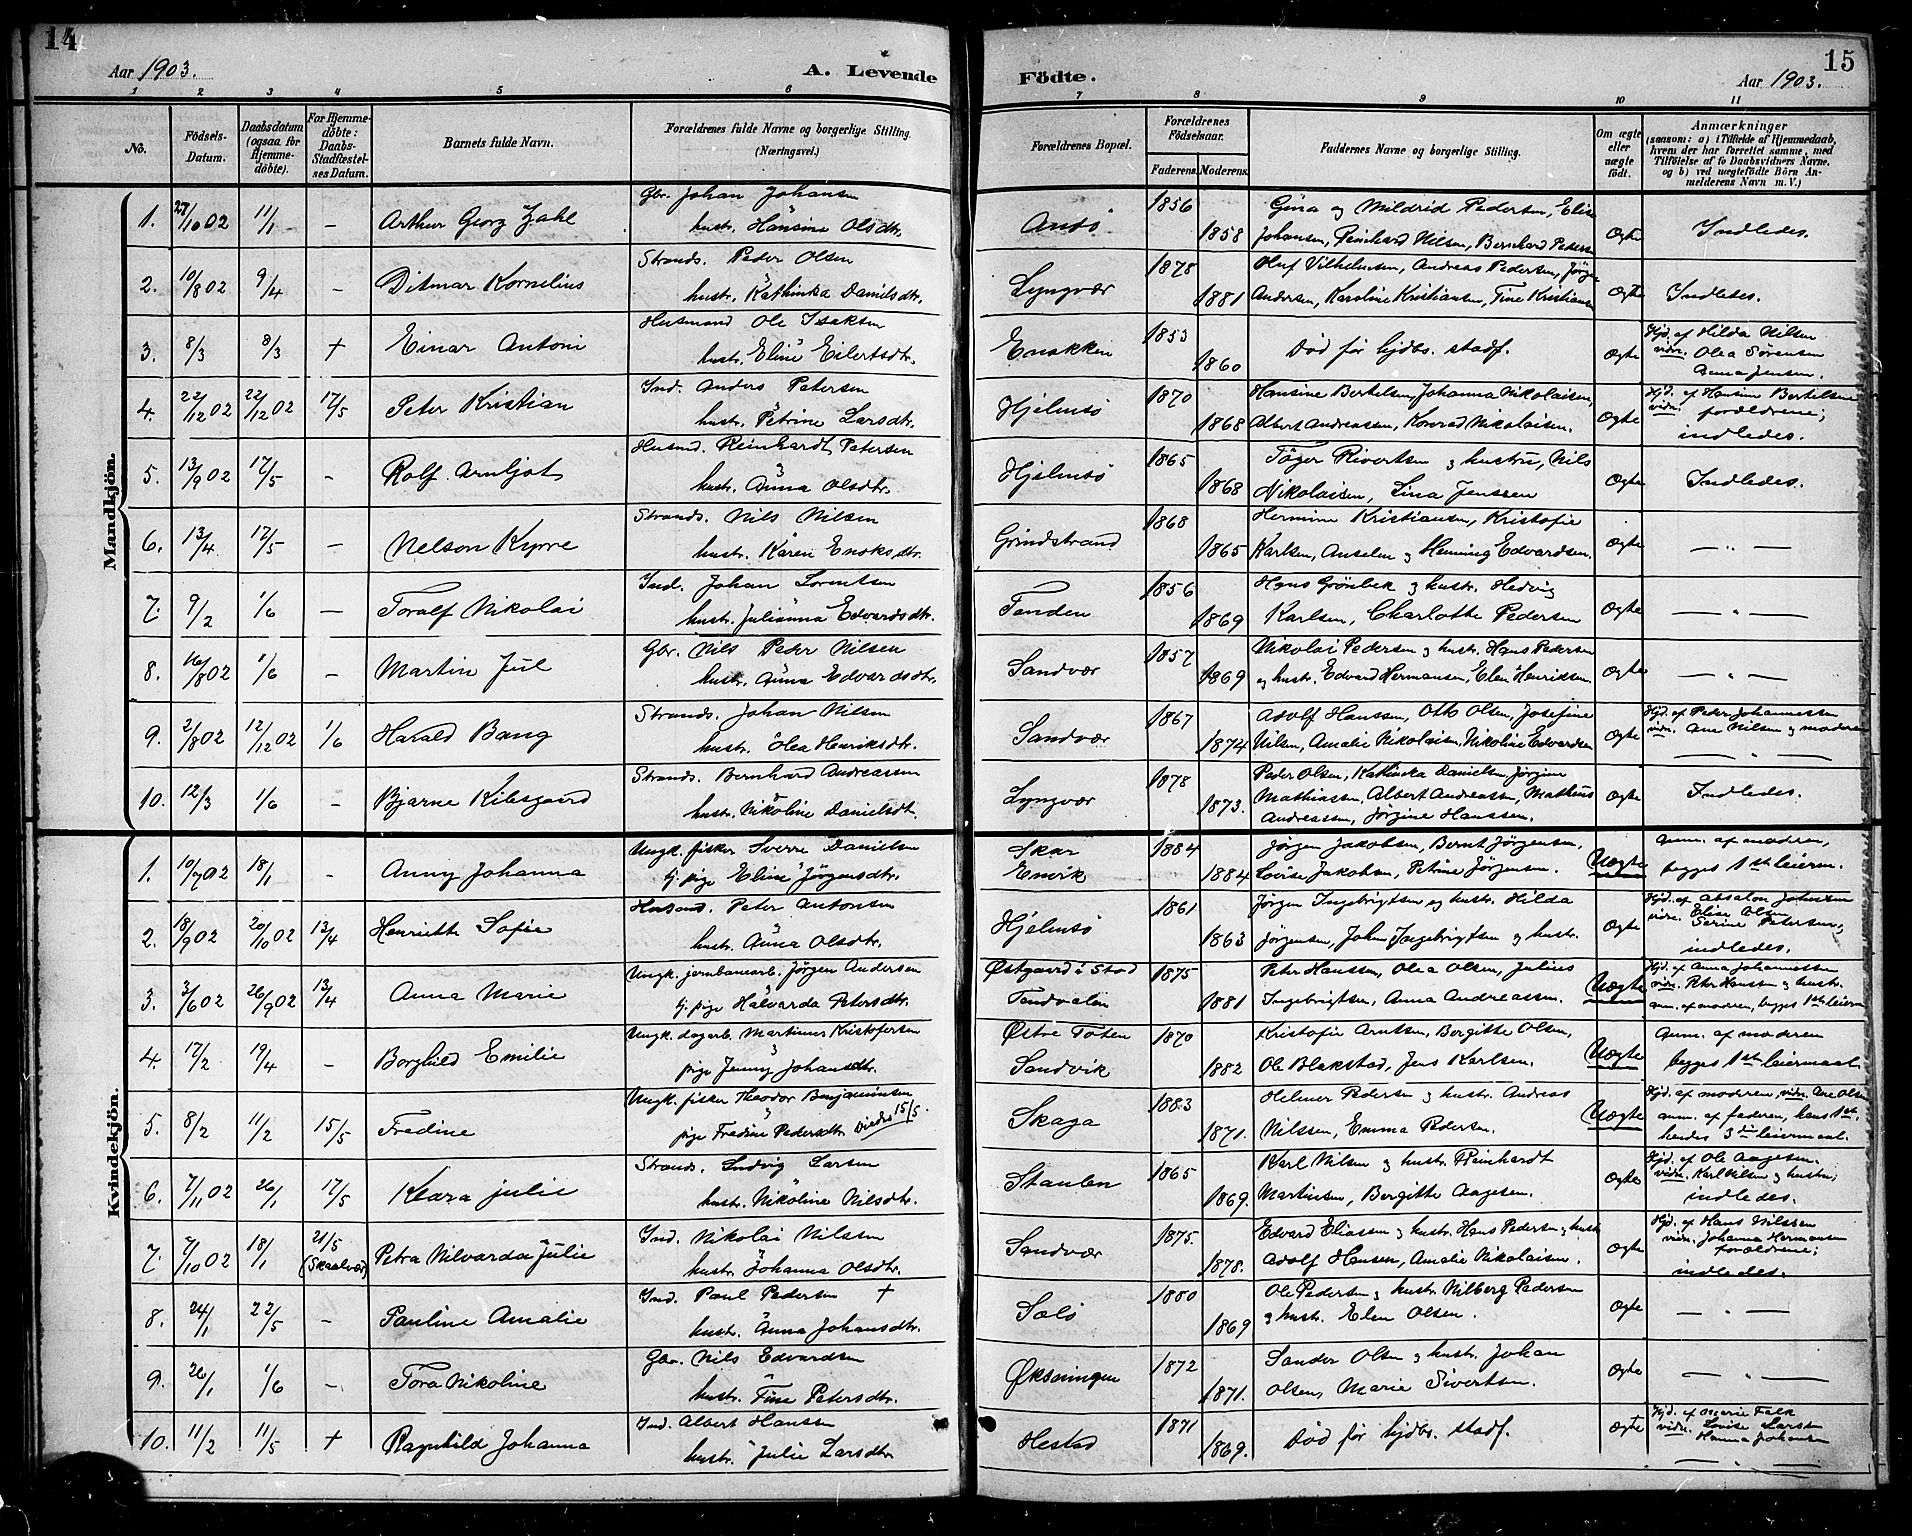 14
Aar 1903.
A. Levende
1 2 3 4 5 6
No.
Födsels-Datum.
Daabsdatum (ogsaa for Hjemme-döbte).
For Hjemme-döbte: Daabs-Stadfæstel-ses Datum.
Barnets fulde Navn.
Forældrenes fulde Navne og borgerlige Stilling. (Næringsvei.)
Mandkjön.
1. 27/10 02 11/1 – Arthur Georg Zahl Gbr. Johan Johansen
hustr. Hansine Olsdtr.
2. 10/8 02 9/4 – Ditmar Kornelius Strands. Peder Olsen
hustr. Kathinka Danielsdtr.
3. 8/3 8/3 † Einar Antoni Husmand Ole Isaksen
hustr. Eline Eilertsdtr.
4. 22/12 02 22/12 02 17/5 Peter Kristian Ind. Anders Petersen
hustr. Petrine Larsdtr.
5. 13/9 02 17/5 – Rolf Arnljot Husmd. Reinhardt Petersen
hustr. Anna Olsdtr.
6. 13/4 17/5 – Nelson Kyrre Strands. Nils Nilsen
hustr. Karen Enoksdtr.
7. 9/2 1/6 – Toralf Nikolai Ind. Johan Lorentsen
hustr. Julianna Edvardsdtr.
8. 16/8 02 1/6 – Martin Jul Gbr. Nils Peder Nilsen
hustr. Anna Edvardsdtr.
9. 2/8 02 12/12 02 1/6 Harald Bang Strands. Johan Nilsen
hustr. Olea Henriksdtr.
10. 12/3 1/6 – Bjarne Kilsgaard Strands. Bernhard Andreassen
hustr. Nikoline Danielsdt.
Kvindekjön.
1. 10/7 02 18/1 – Anny Johanna Ungk. fisker Sverre Danielsen
tj. pige Eline Jørgensdtr.
2. 18/9 02 20/10 02 13/4 Henriette Sofie Husmd. Peter Antonsen
hustr. Anna Olsdtr.
3. 3/6 02 26/9 02 13/4 Anna Marie Ungk. jernbanearb. Jörgen Andersen
tj. pige Halvarda Petersdtr.
4. 17/2 19/4 – Borghild Emilie Ungk. dagarb. Martinus Kristofersen
pige Jenny Johansdtr.
5. 8/2 11/2 15/5 Fredine Ungk. fisker Theodor Benjaminsen
pige Fredine Pedersdtr. viedes 15/5.
6. 7/11 02 26/1 17/5 Klara Julie Strands. Ludvig Larsen
hustr. Nikoline Nilsdtr.
7. 7/10 02 18/1 21/5 (Skaalvær) Petra Nilvarda Julie Ind. Nikolai Nilssen
hustr. Johanna Olsdtr.
8. 24/1 22/5 – Pauline Amalie Ind. Paul Pedersen †
hustr. Anna Johansdtr.
9. 26/1 1/6 – Tora Nikoline Gbr. Nils Edvardsen
hustr. Fine Petersdtr.
10. 11/2 11/5 † Ragnhild Johanna Ind. Albert Hanssen
hustr. Julie Larsdtr.
Födte.
15
Aar 1903.
7 8 9 10 11
Forældrenes Bopæl.
Forældrenes Födselsaar.
Faderens. Moderens.
Faddernes Navne og borgerlige Stilling.
Om ægte eller uægte födt.
Anmærkninger
(saasom: a) i Tilfælde af Hjemmedaab, hvem der har forrettet samme, med Tilföielse af to Daabsvidners Navne, og b) ved uægtefödte Börn An-melderens Navn m. V.)
Andö 1856 1858 Gina og Mildrid Pedersen, Elise
Johansen, Reinhard Nilsen, Bernhard Pedersen Ægte Indledes.
Lyngvær 1878 1881 Oluf Vilhelmsen, Andreas Pedersen, Jørgen
Andersen, Karoline Kristiansen, Tine Kristiansen Ægte Indledes.
1853 1860 Død før hjdbs. stadf. Ægte Hjd. af Hilda Nilsen
vidn. Olea Sørensen
Anna Jensen.
Hjelmsö 1870 1868 Hansine Bertelsen, Johanna Nikolaisen,
Albert Andreassen, Konrad Nikolaisen. Ægte Hjd. af Hansine Bertelsen
vidn. forældrene;
indledes.
Hjelmsö 1865 1868 Töger Sivertsen og hustru, Nils
Nikolaisen, Lina Jenssen Ægte Indledes.
Grindstrand 1868 1865 Hermine Kristiansen, Kristofie
Karlsen, Anselm og Henning Edvardsen. Ægte — " —
Tenden 1856 1869 Hans Grönbek og hustr. Hedvig
Karlsen, Charlotte Pedersen Ægte — " —
Sandvær 1857 1869 Nikolai Pedersen og hustr. Hans Pedersen
og hustr. Edvard Hermansen, Elen Henriksen. Ægte — " —
Sandvær 1867 1874 Adolf Hanssen, Otto Olsen, Josefine
Nilsen, Amalie Nikolaisen, Nikoline Edvardsen Ægte Hjd. af Peder Johannessen
vidn. Ane Nilsen og moderen
— " —
Lyngvær 1878 1873. Peder Olsen, Kathinka Danielsen, Jørgine
Mathiassen, Albert Andreassen, Mathias
Andreassen, Jørgine Hanssen. Ægte Indledes.
Skar
Envik 1884 1884 Jörgen Jakobsen, Bernt Jörgensen,
Lovise Jakobsen, Petrine Jörgensen. Uægte Anm. af moderen,
begges 1ste leierm.
Hjelmsö 1861 1863 Jörgen Ingebrigtsen og hustr. Hilda
Jörgensen, Johan Ingebrigtsen og hustr. Ægte Hjd. af Absalon Johnsen
vidn. Elise Olsen
Serine Petersen;
indledes.
Østgaard i Stod
Tendvalen 1875 1881 Peter Hanssen, Olea Olsen, Julius
Ingebrigtsen, Anna Andreassen. Uægte Hjd. af Anna Johannessen
vidn. Peter Hanssen og hustr.
anm. af moderen, begges 1ste leierm
Østre Toten
Sandvik 1870 1882 Kristofie Arntsen, Borgitte Olsen,
Ole Blakstad, Jens Karlsen. Uægte Anm. af moderen
begges 1ste leiermaal.
Skaga 1883 1871. Helmer Pedersen og hustr. Andreas
Nilssen, Emma Pedersen. Uægte Hjd. af moderen, vidn. Ane Olsen
anm. af faderen, hans 1ste,
hendes 3die leiermaal.
Staulen 1865 1869. Karl Nilsen og hustr. Reinhardt
Martinsen, Bergitte Aagesen. Ægte Hjd. af Ole Aagesen.
vidn. Karl Nilsen og hustru;
indledes.
Sandvær 1875. 1878. Edvard Eliassen og hustr. Hans Pedersen og hustr.
Adolf Hansen, Amalie Nikolaisen. Ægte Hjd. af Hans Nilssen
vidn. Johanna Hermansen
forældrene;
indledes.
Solö 1880 1869 Ole Pedersen og hustr. Nilberg Pedersen
og hustr. Elen Olsen. Ægte — " —
Økseningen 1872 1871. Sander Olsen og hustr. Johan
Olsen, Marie Sivertsen. Ægte — " —
Hestad 1871 1869. Död før hjdbs. stadf. Ægte Hjd. af Marie Falk
vidn. Lovise Larsen
Hanna Johansen
— " —